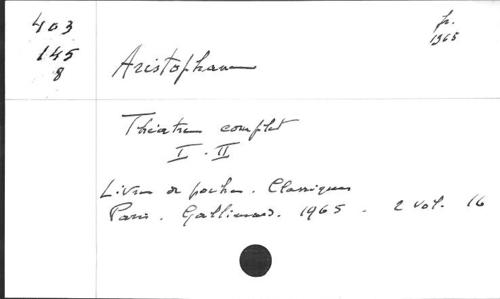 403
145
8
fr.
1965
Aristophane
Théatre complet
I. II
Livre de poche. Classiques
Paris. Gallimard. 1965. 2 vol. 16